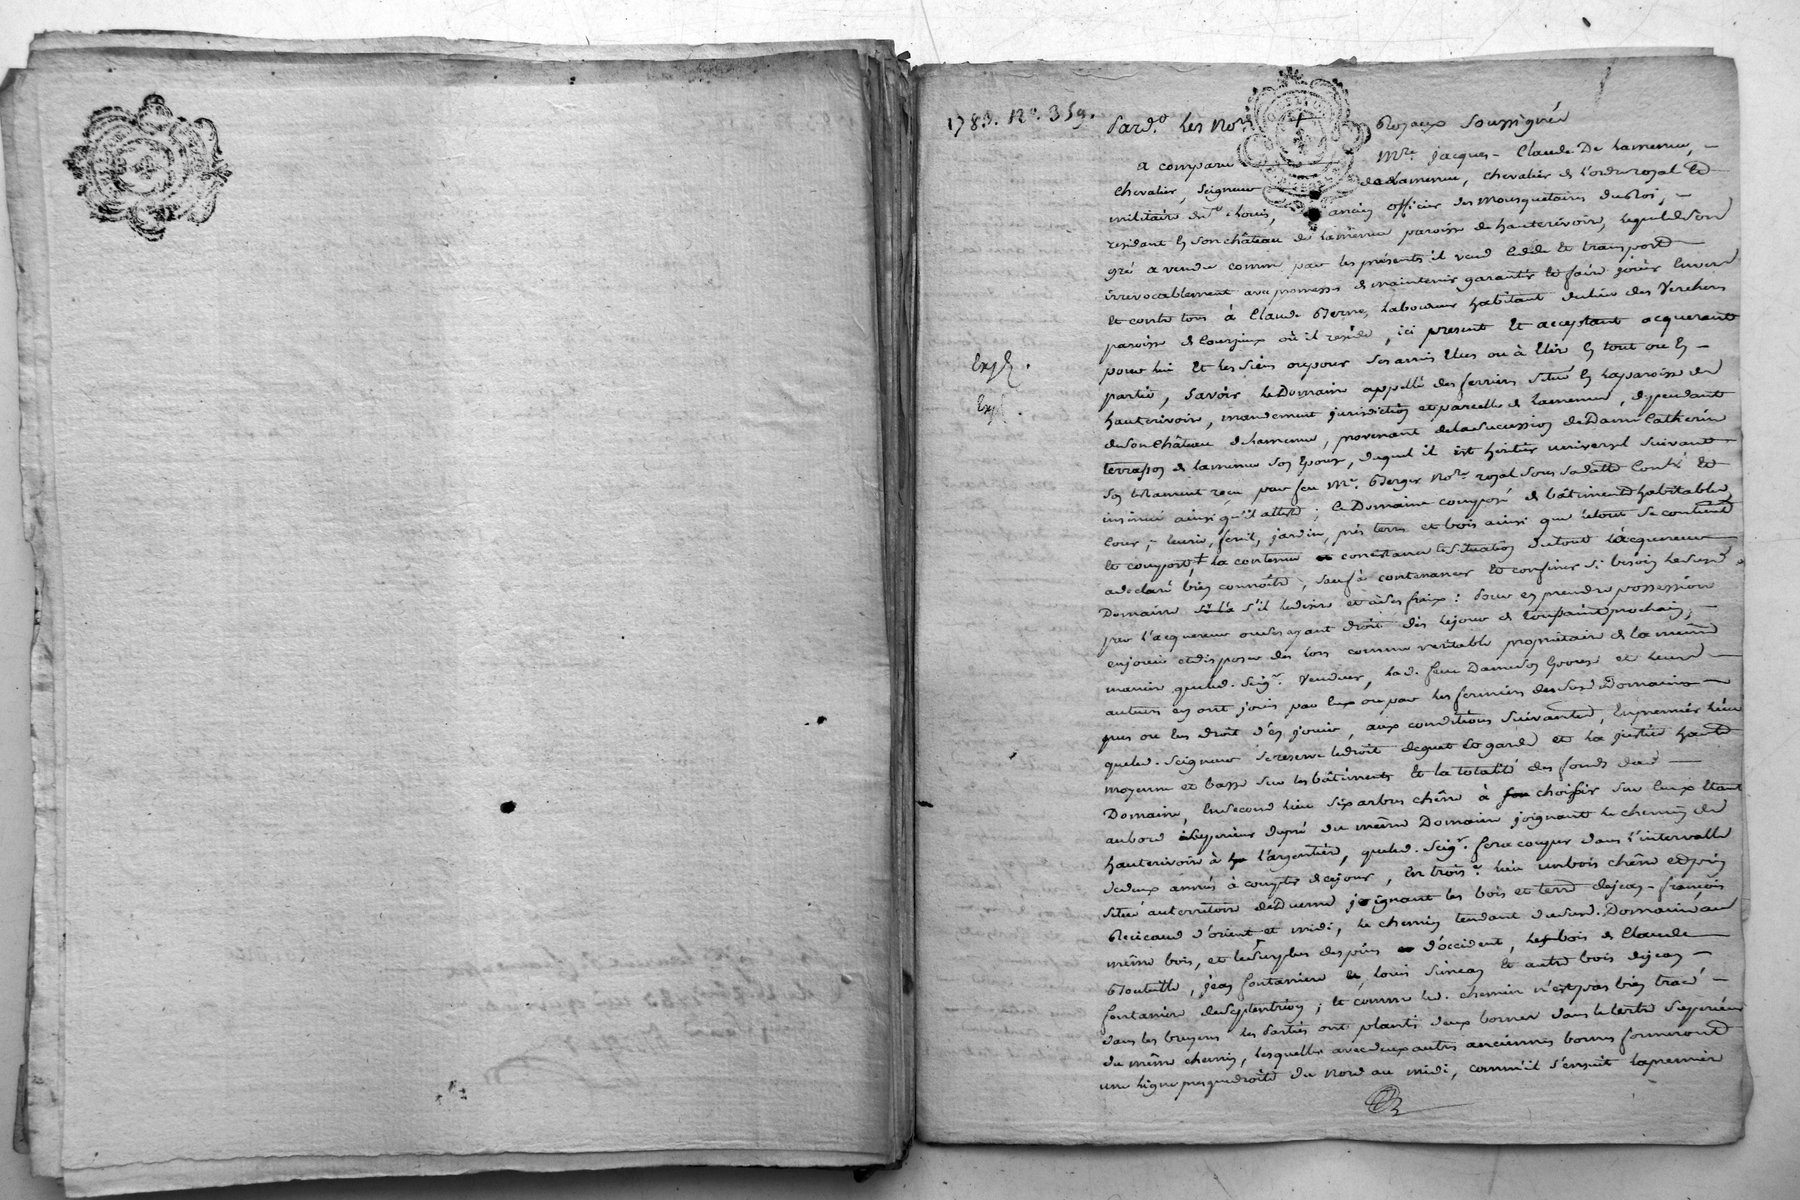 1783. No. 359.
Pard.o les No.res Royaux soussignés
a comparu Mre. jacques-Claude De lamenue,
chevalier, seigneur de lamenue, chevalier de l'ordre royal et
militaire de st. Louis, ancien officier des mousquetaires du Roi,
residant en son château de lamenue paroisse de hauterivoire, lequel de son
gré a vendu comme par les présentes il vend cede et transporte
irrevocablement avec promesse de maintenir garantir et faire jouir envers
et contre tous à Claude laboureur habitant du lieu des Verchers
paroisse de Courzieux où il reside, ici present et acceptant acquerant
pour lui et les siens ou pour ses amis elus ou à elire en tout ou en
partie, savoir le Domaine appellé des ferriers situé en la paroisse de
hauterivoire, mandement jurisdiction et parcelle de lamenue, dependant
de son Château de lamenue, provenant de la succession de Dame Catherine
terrasson de lamenue son epouse, de quel il est heritier universel suivant
son testament reçu par feu Me. Berger No.re royal sous sa datte Controlé et
insinué ainsi qu'il atteste; le Domaine composé de bâtiments habitables,
Cour, ecurie, fenil, jardin, prés terres et bois ainsi que le tout se contient
et comporte la contenue et situation du tout l'acquereur
a declaré bien connoître, sauf à contenancer et confiner si besoin le susd.
Domaine s'il le desire et à ses fraix: pour en prendre possession
par l'acquereur ou ses ayant droit dès le jour de toussaint prochain,
en jouir et disposer dès lors comme veritable proprietaire de la même
maniere que led. seigr. Vendeur, lad. feue Dame son epouse et leurs
auteurs en ont joui par eux ou par les fermiers des susd. Domaines
pus ou eu droit d'en jouir, aux conditions suivantes, en premier lieu
que led. seigneur se reserve le droit de guet et garde et la justice haute
moyenne et basse sur les bâtiments et la totalité des fonds dud.
Domaine, en second lieu six arbres chêne à choisir sur ceux etant
au bord superieur du pré du même Domaine joignant le chemin de
hauterivoire à l'argentiere, que led. seigr. fera couper dans l'intervalle
de deux années à compter de ce jour, en trois.e lieu un bois chêne et pin
situé au territoire de joignant les bois et terre de jean-françois
d'orient et midi, le chemin tendant du susd. Domaine au
même bois, et le surplus des pins d'occident, les bois de Claude
Bouteille, jean fontaniere et louis simean et autre bois de jean
fontaniere de septentrion; et comme led. chemin n'est pas bien tracé
dans les bruyeres les parties ont planté deux bornes dans le tertre superieur
du même chemin, lesquelles avec deux autres anciennes bornes formeront
une ligne presque droite du Nord au midi, comme il s'ensuit la premiere